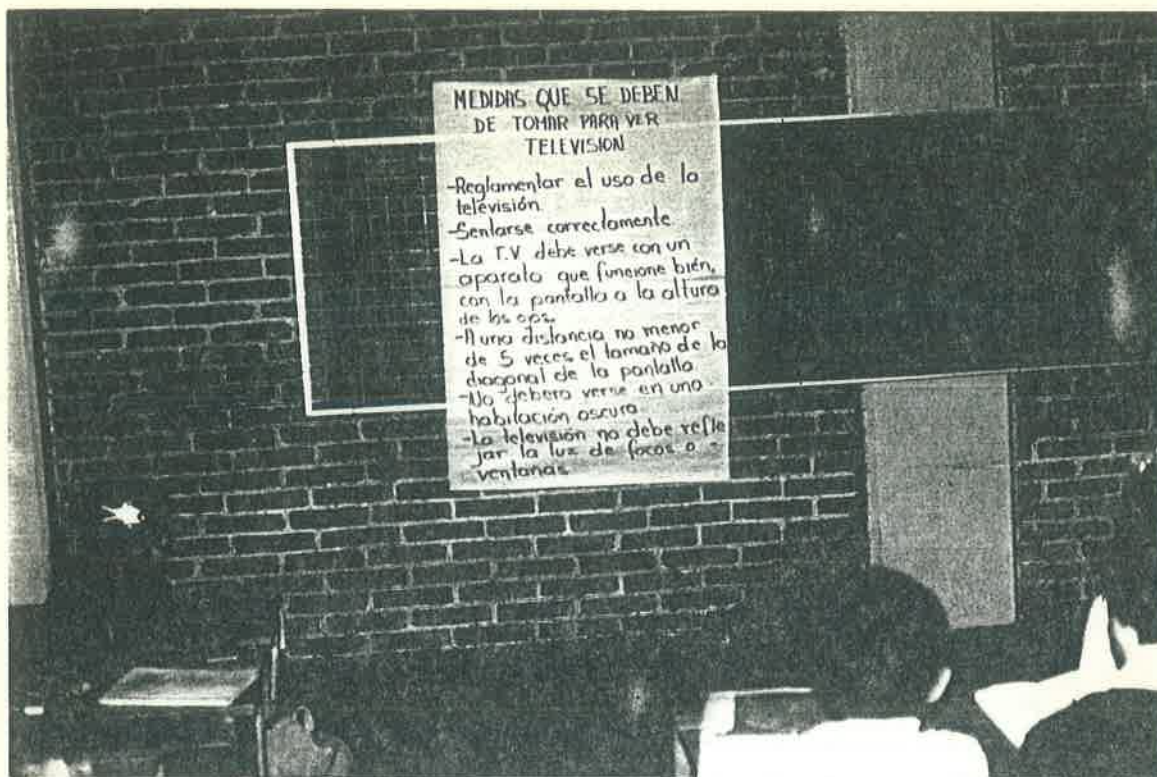 MEDIDAS QUE SE DEBEN
DE TOMAR PARA VER
TELEVISION
-Reglamentar el uso de la
televisión
-Sentarse correctamente
-La T.V debe verse con un
aparato que funcione bién,
con la pantalla a la altura
de los ojos.
-A una distancia no menor
de 5 veces el tamaño de la
diagonal de la pantalla
-No debera verse en una
habitación oscura
-La televisión no debe refle
jar la luz de focos o -
ventanas